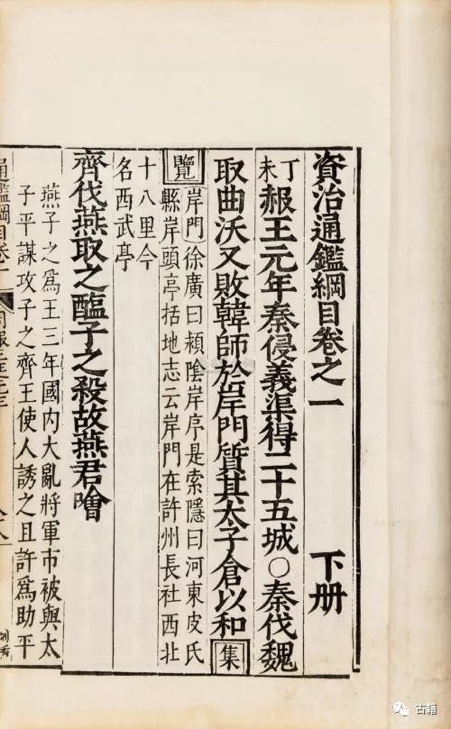 資治通鑑綱目卷之一　下册
丁未　赧王元年秦侵義渠得二十五城○秦伐魏
取曲沃又敗韓師於岸門質其太子倉以和集
覽岸門徐廣曰頴陰岸序是索隱曰河東皮氏
縣岸頭亭括地志云岸門在許州長社西北
十八里今
名西武亭
齊伐燕取之醢子之殺故燕君噲
燕子之爲王三年國內大亂將軍市被與太
子平謀攻子之齊王使人誘之且許爲助平
通鑑綱目卷一
古籍